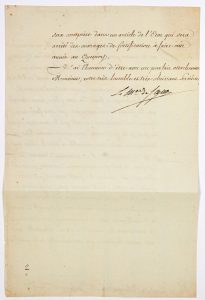 sera comprise dans un article de l'État qui sera
arrêté des ouvrages de fortification à faire cette
année au
J'ai l'honneur d'être avec un parfait attachement
Monsieur, votre très humble et très obéissant Serviteur
Le M. de